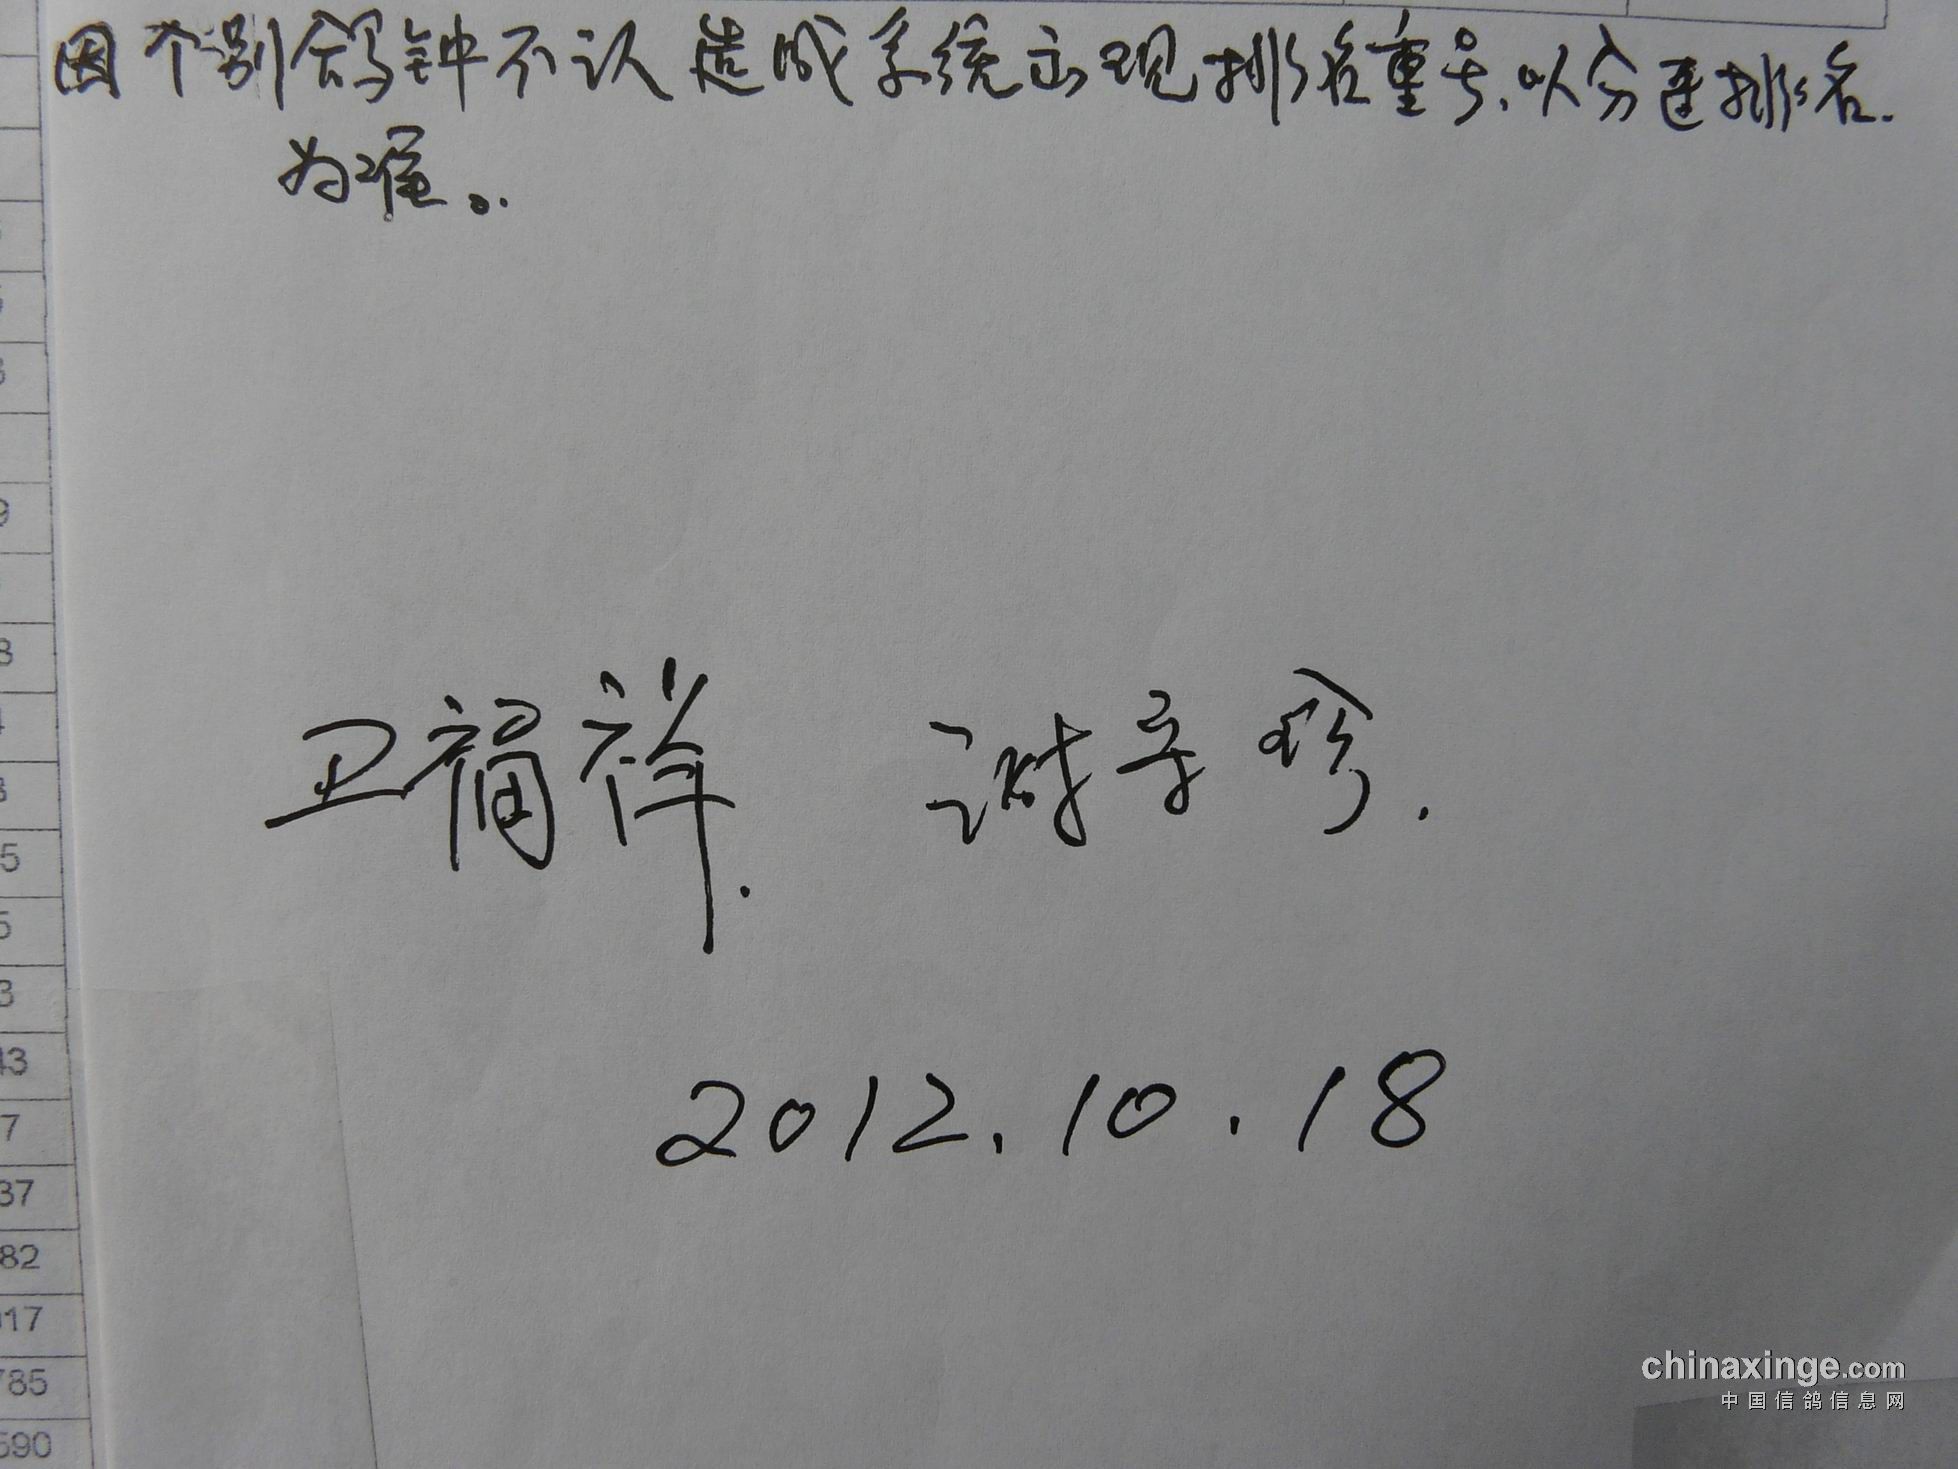 因个别鸽钟不认造成系统出现排名重号,以分速排名.
为准。.
卫福祥. 谢幸珍.
2012.10.18
3
9
3
3
5
5
3
43
7
37
82
017
785
590
chinaxinge.com
中国信鸽信息网